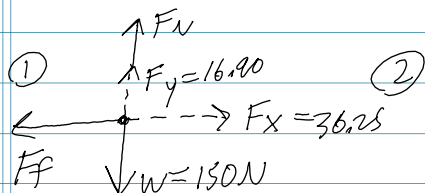 F_N
① F_y = 16.90 ②
F_x = 36.25
F_f
W = 150N